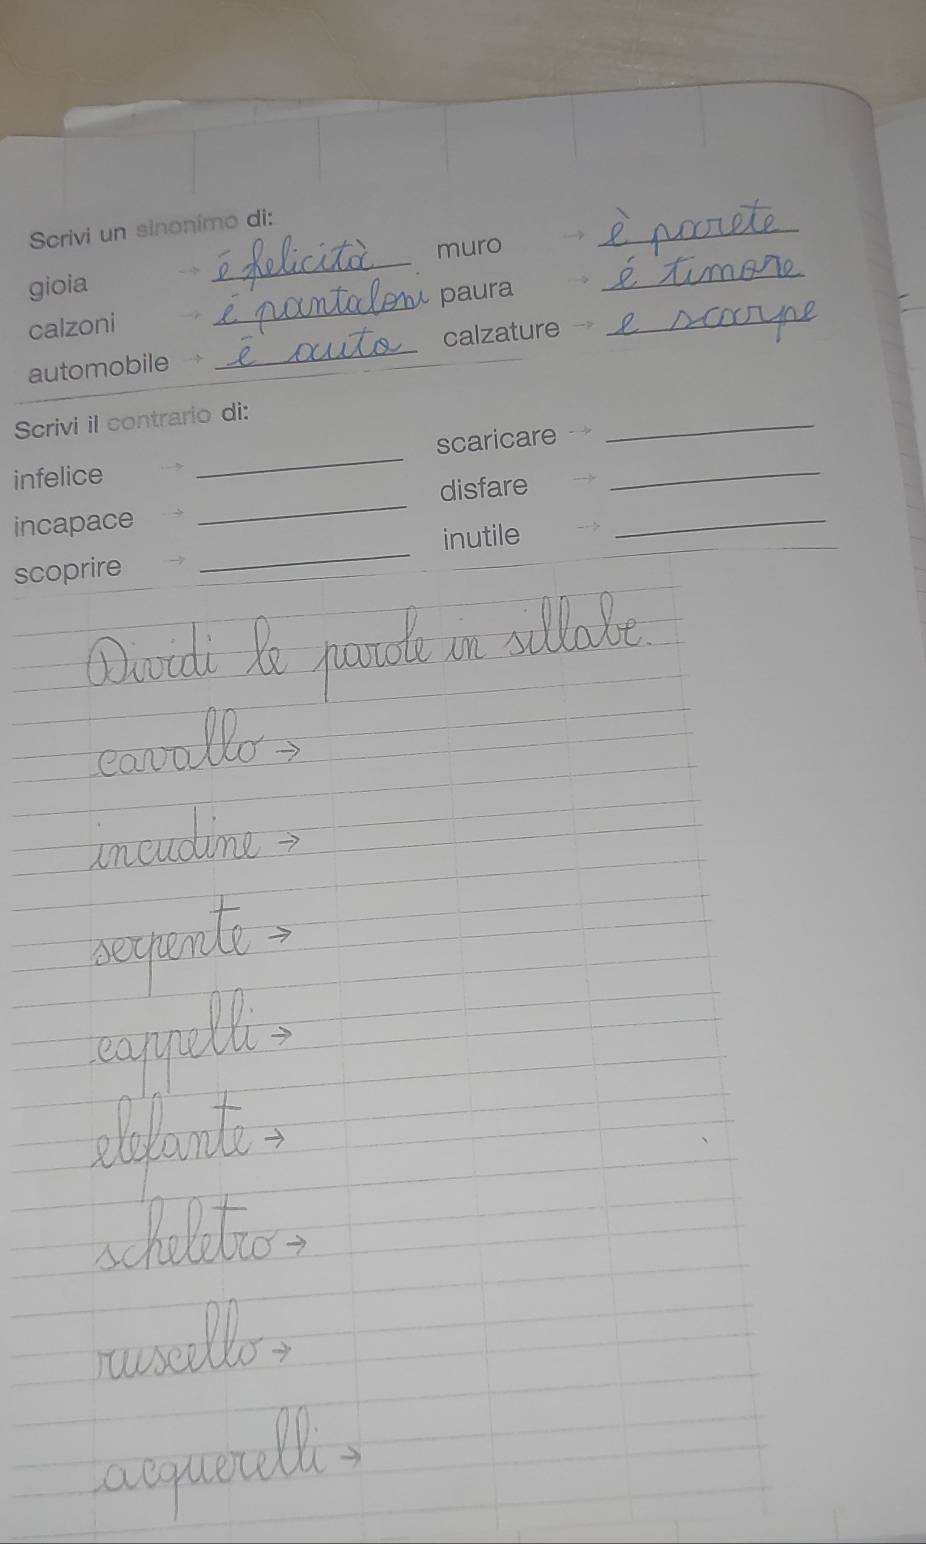 Scrivi un sinonimo di:
gioia → è felicità muro → è parete
calzoni → è pantaloni paura → è timore
automobile → è auto calzature → e scarpe
Scrivi il contrario di:
infelice → scaricare →
incapace → disfare →
scoprire → inutile →
Dividi le parole in sillabe.
cavallo →
incudine →
serpente →
cappelli →
elefante →
scheletro →
ruscello →
acquerelli →